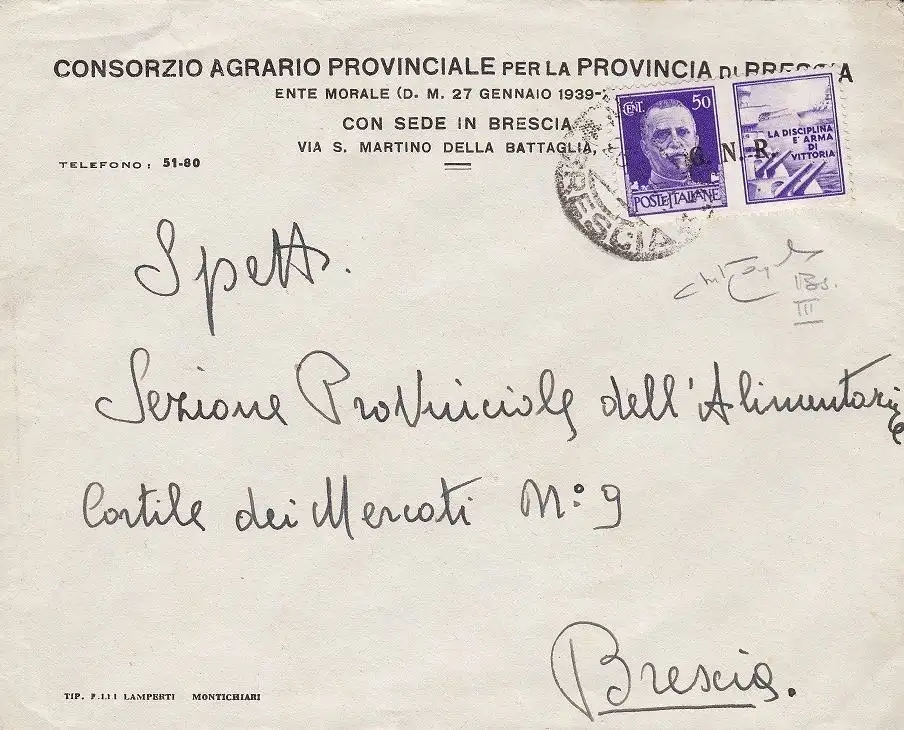 CONSORZIO AGRARIO PROVINCIALE PER LA PROVINCIA DI BRESCIA
ENTE MORALE (D. M. 27 GENNAIO 1939-
CON SEDE IN BRESCIA
VIA S. MARTINO DELLA BATTAGLIA,
TELEFONO: 51-80
CENT. 50
POSTE ITALIANE
G. N. R.
LA DISCIPLINA
E' ARMA
DI
VITTORIA
BRESCIA
Bs.
III
Spett.
Sezione Provinciale dell'Alimentazione
Cortile dei Mercati N° 9
Brescia.
TIP. F.LLI LAMPERTI MONTICHIARI